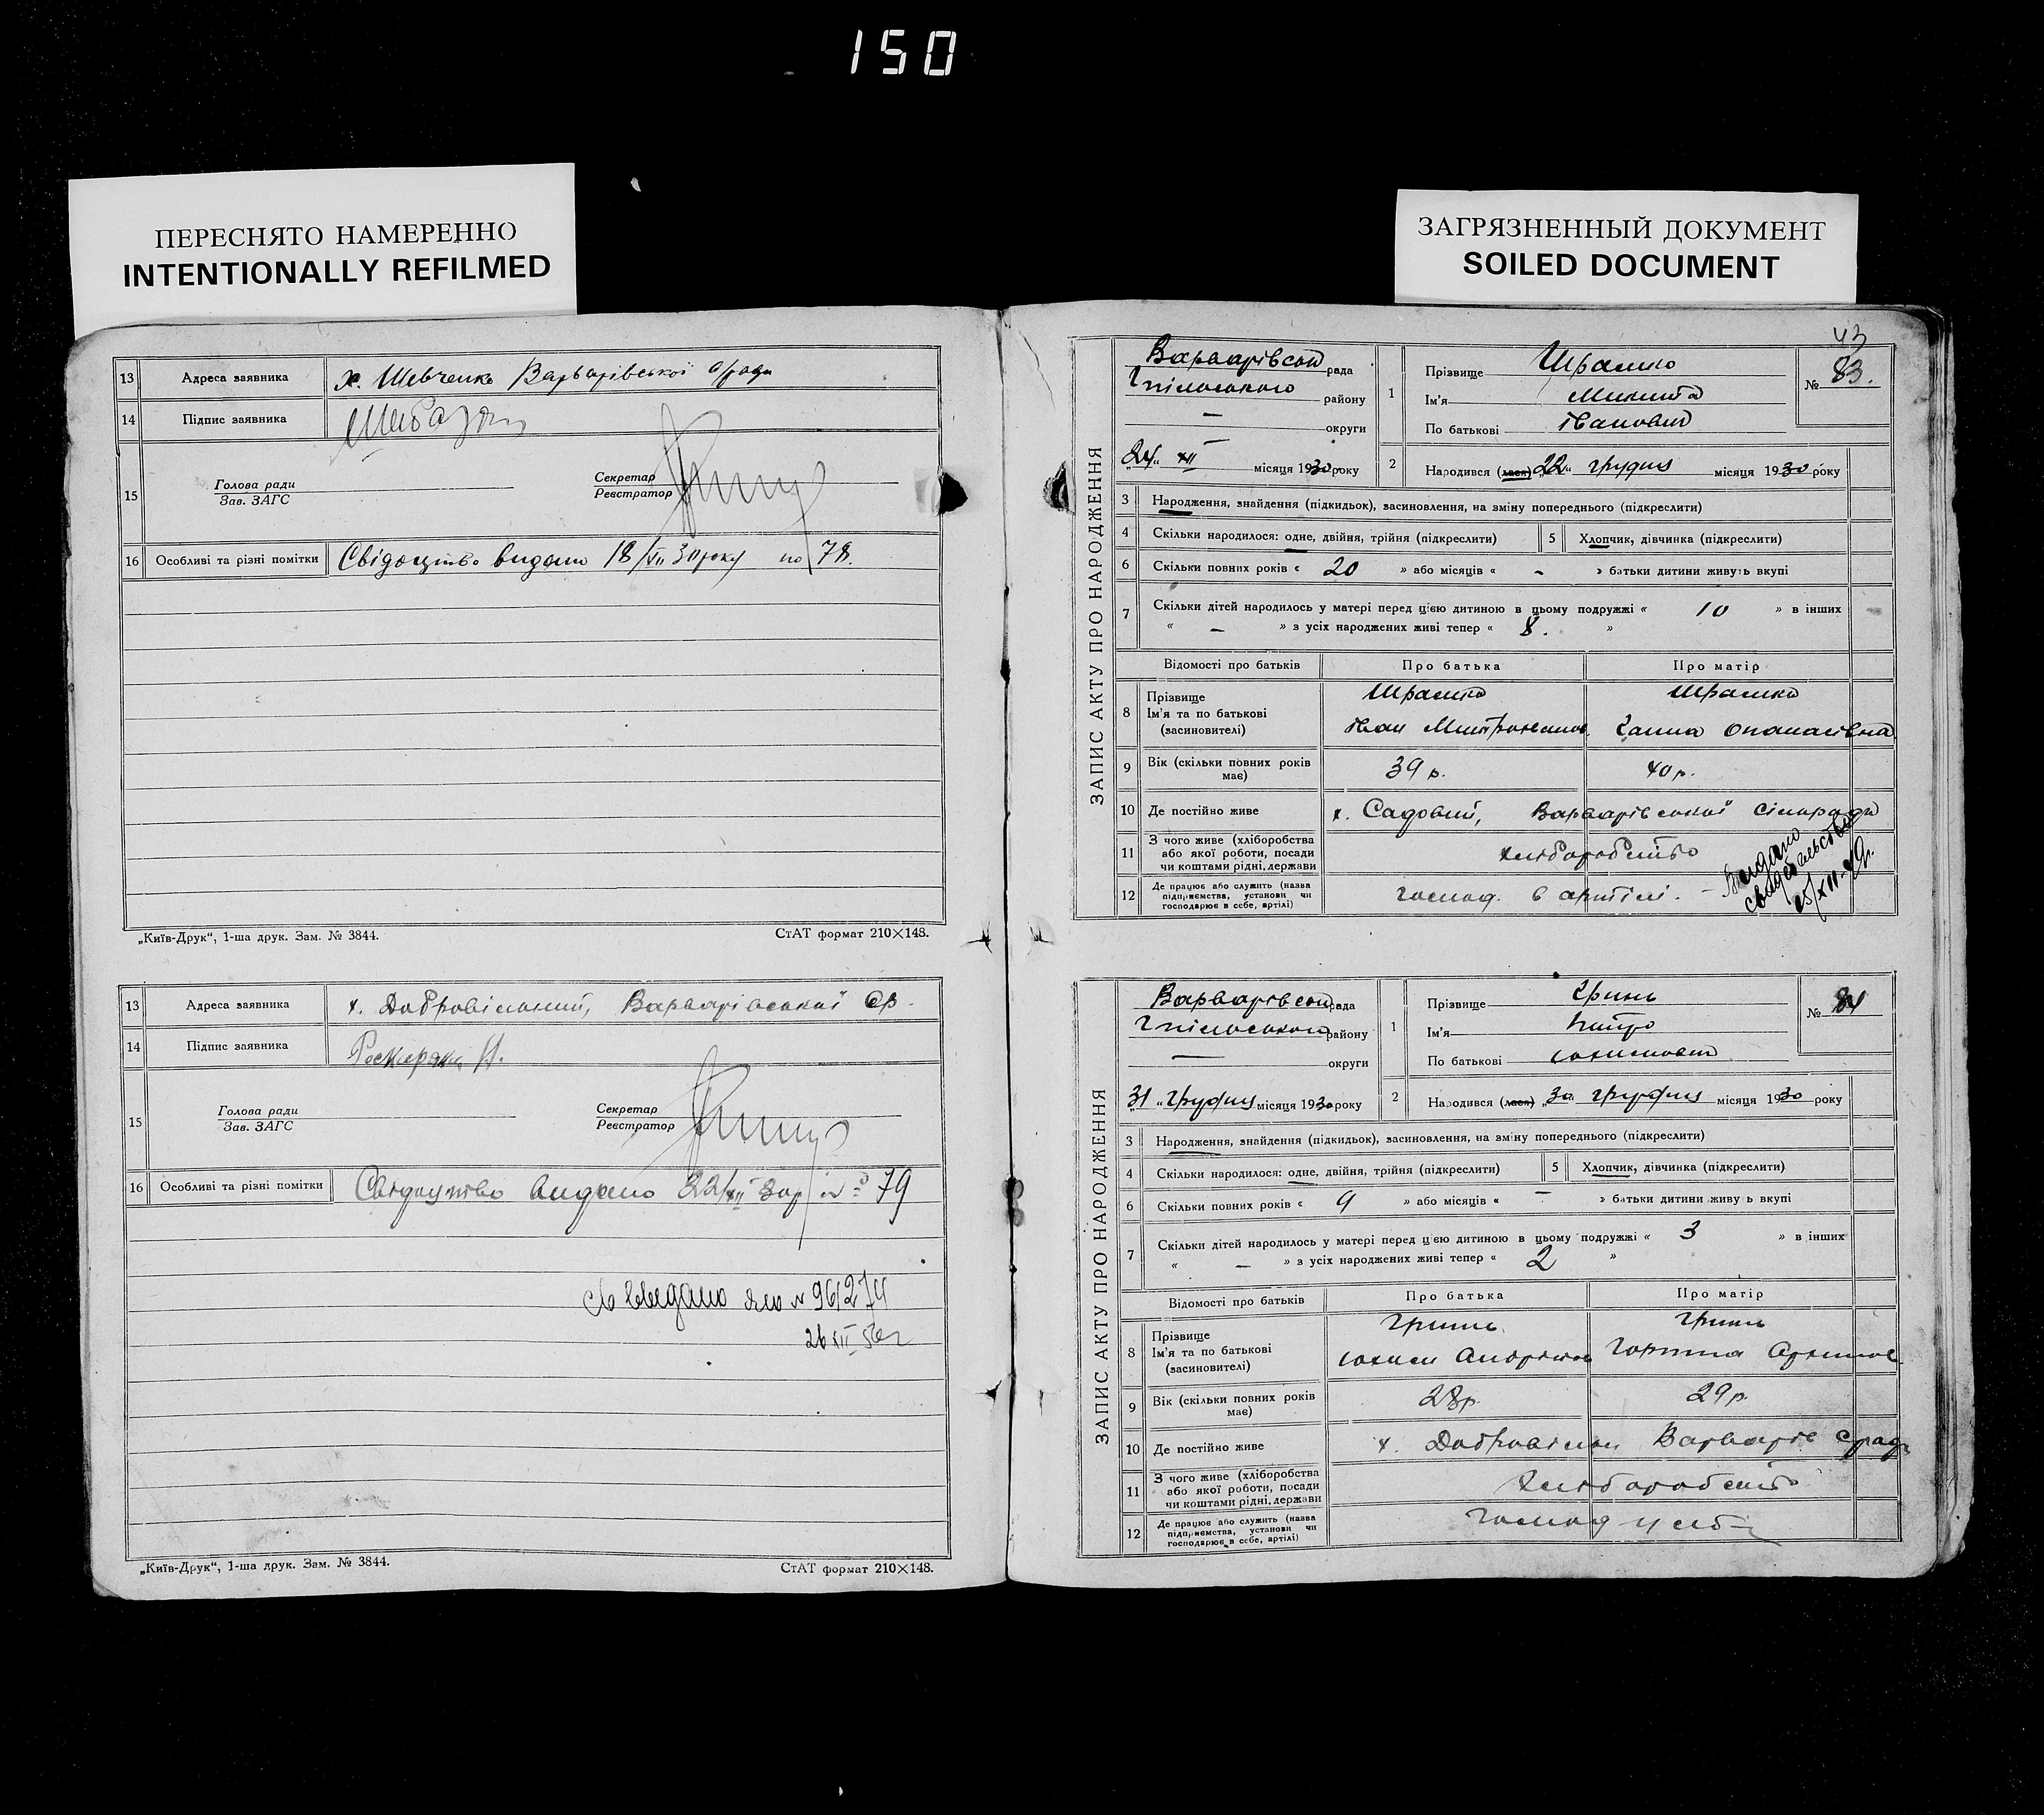 150
ПЕРЕСНЯТО НАМЕРЕННО
INTENTIONALLY REFILMED
ЗАГРЯЗНЕННЫЙ ДОКУМЕНТ
SOILED DOCUMENT
13 Адреса заявника х. Шевченко Варварівської с/ради
14 Підпис заявника
15 Голова ради Секретар
Зав. ЗАГС Реєстратор
16 Особливі та різні помітки Свідоцтво видано 18/VII 30 року по 78.
„Київ-Друк“, 1-ша друк. Зам. № 3844. СтАТ формат 210×148.
13 Адреса заявника х. Добровільний, Варварівської Ср.
14 Підпис заявника
15 Голова ради Секретар
Зав. ЗАГС Реєстратор
16 Особливі та різні помітки Свідоцтво видано 22/XII 30р № 79
видано № 961274
26 XII
„Київ-Друк“, 1-ша друк. Зам. № 3844. СтАТ формат 210×148.
43
ЗАПИС АКТУ ПРО НАРОДЖЕННЯ
Варварівськ рада
району
— округи
24 XII місяця 1930 року
1 Прізвище Шрамко
Ім'я Микита
По батькові Іванович
№ 83.
2 Народився (лася) 22 грудня місяця 1930 року
3 Народження, знайдення (підкидьок), засиновлення, на зміну попереднього (підкреслити)
4 Скільки народилося: одне, двійня, трійня (підкреслити) 5 Хлопчик, дівчинка (підкреслити)
6 Скільки повних років « 20 » або місяців « - » батьки дитини живуть вкупі
7 Скільки дітей народилось у матері перед цією дитиною в цьому подружжі « 10 » в інших
« — » з усіх народжених живі тепер « 8. »
Відомості про батьків Про батька Про матір
8 Прізвище Шрамко Шрамко
Ім'я та по батькові Іван Ганна Опанасівна
(засиновителі)
9 Вік (скільки повних років 39 р. 40 р.
має)
10 Де постійно живе х. Садовий, Варварівської Сільради
11 З чого живе (хліборобства хліборобство
або якої роботи, посади
чи коштами рідні, держави
12 Де працює або служить (назва господ. в артілі. -
підприємства, установи чи
господарює в себе, артілі)
Видано
свидетельство
ЗАПИС АКТУ ПРО НАРОДЖЕННЯ
Варварівськ рада
району
— округи
31 грудня місяця 1930 року
1 Прізвище Гринь
Ім'я Петро
По батькові
№ 84
2 Народився (лася) 30 грудня місяця 1930 року
3 Народження, знайдення (підкидьок), засиновлення, на зміну попереднього (підкреслити)
4 Скільки народилося: одне, двійня, трійня (підкреслити) 5 Хлопчик, дівчинка (підкреслити)
6 Скільки повних років « 9 » або місяців « — » батьки дитини живуть вкупі
7 Скільки дітей народилось у матері перед цією дитиною в цьому подружжі « 3 » в інших
« — » з усіх народжених живі тепер « 2 »
Відомості про батьків Про батька Про матір
8 Прізвище Гринь Гринь
Ім'я та по батькові
(засиновителі)
9 Вік (скільки повних років 28р. 29р.
має)
10 Де постійно живе х. Добровільн Варварів срад
11 З чого живе (хліборобства хліборобство
або якої роботи, посади
чи коштами рідні, держави
12 Де працює або служить (назва господ у себе
підприємства, установи чи
господарює в себе, артілі)